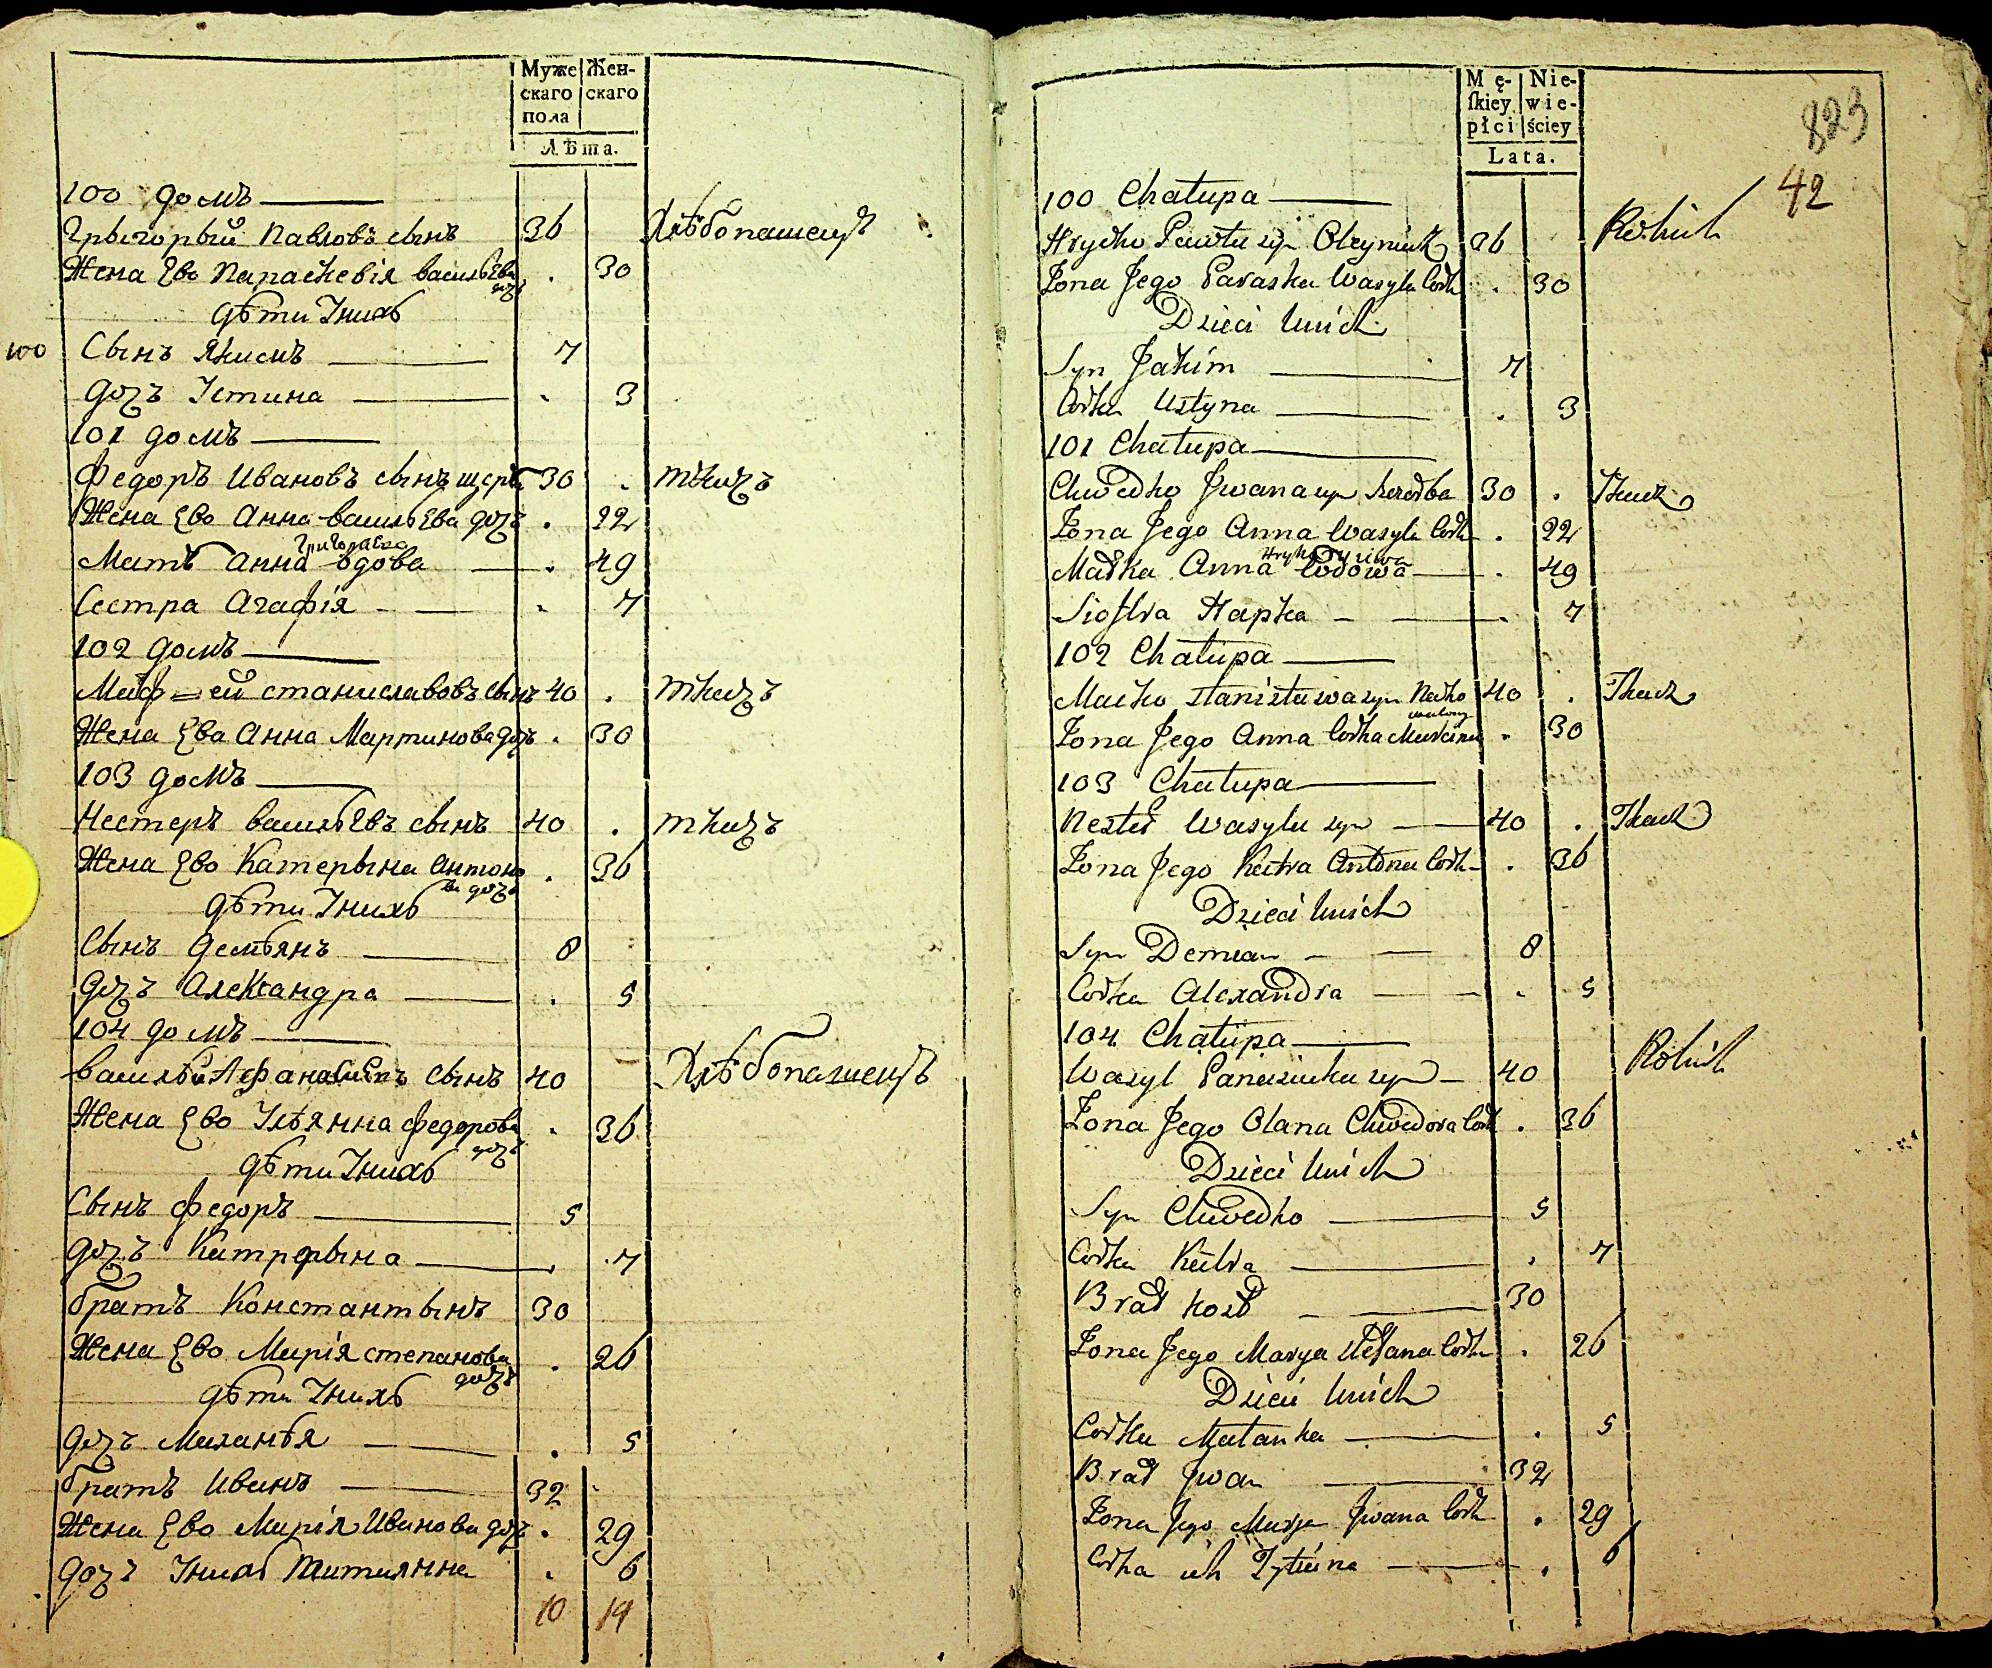 Муже
скаго
пола
Жен-
скаго
Лѣта.
100 домъ
Грыгорый Павловъ сынъ 36 Хлѣбопашецъ
Жена Ево Параскевія васильЕва дочъ . 30
дѣти Ічихъ
100 Сынъ Якимъ 7
дочъ Істина . 3
101 домъ
Федоръ Ивановъ сынъ щерба 30 . ткачъ
Жена Ево Анна васильЕва дочъ . 22
Мать Анна Григорева вдова . 49
Сестра Агафія . 7
102 домъ
Маф=ей станиславовъ сынъ 40 . ткачъ
Жена Ева Анна Мартинова дочъ . 30
103 домъ
Нестеръ васильЕвъ сынъ 40 . ткачъ
Жена Ево Катерына Антонова дочъ . 36
дѣти Інихъ
Сынъ Демьянъ 8
дочъ Александра . 5
104 домъ
василъй Афанасиевъ сынъ 40 Хлѣбопашецъ
Жена Ево Ульянна федорова дочъ . 36
дѣти Інихъ
Сынъ федоръ 5
дочъ Катрерына . 7
братъ Константынъ 30
Жена Ево Марія степанова дочъ . 26
дѣти Інихъ
дочъ Маланья . 5
братъ Иванъ 32
Жена Ево Марія Иванова дочъ . 29
дочъ Інихъ Татиянна . 6
10 14
Mę-
skiey
płci
Nie-
wie-
ściey
Lata.
823
42
100 Chałupa
Hryćko Pawła syn Olizyniuk 36 Rolnik
Żona Jego Paraska Wasyla Corka . 30
Dzieci Unich
Syn Jakim 7
Corka Ustyna . 3
101 Chałupa
Chwedko Jwana syn Szczerba 30 . Tkacz
Żona Jego Anna Wasyla Corka . 22
Matka Anna Hryhoryiwa Wdowa . 49
Siostra Hapka . 7
102 Chałupa
Maćko stanisława syn 40 . Tkacz
Żona Jego Anna Corka Marcina . 30
103 Chałupa
Nester Wasyla syn 40 . Tkacz
Żona Jego Katra Antona Corka . 36
Dzieci Unich
Syn Demian 8
Corka Alexandra . 5
104 Chałupa
Wasyl Panasiuka syn 40 Rolnik
Żona Jego Olana Chwedora Corka . 36
Dzieci Unich
Syn Chwedko 5
Corka Katra . 7
Brat Kost 30
Żona Jego Marya Stefana Corka . 26
Dzieci Unich
Corka Małanka . 5
Brat Jwan 32
Żona Jego Marya Jwana Corka . 29
Corka ich Tytiana . 6